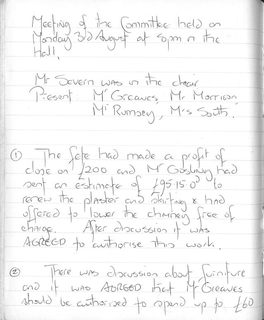 Meeting of the Committee held on
Monday 3rd August at 8pm in the
Hall.
Mr Severn was in the chair
Present Mr Greaves, Mr Morrison,
Mr Rumsey, Mrs South.
① The fete had made a profit of
close on £200 and Mr Gosling had
sent an estimate of £95.15.0 to
renew the plaster and skirting & had
offered to lower the chimney free of
charge. After discussion it was
AGREED to authorise this work.
② There was discussion about furniture
and it was AGREED that Mr Greaves
should be authorised to spend up to £60